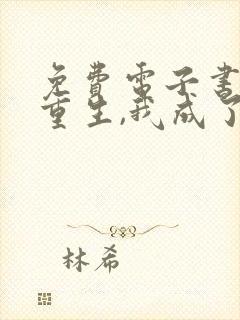 免費電子書
重生,我成了
林希